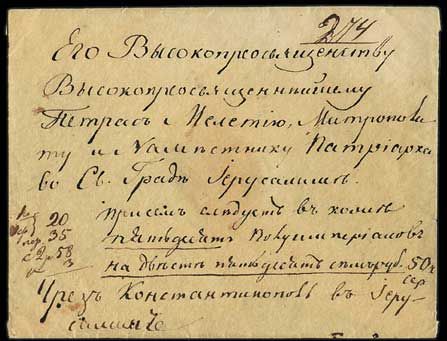 274
Его Высокопреосвященству
Высокопреосвященнѣйшему
Петрасъ Мелетію, Митропол
ту и Намѣстнику Патріарха
во Св. Градѣ Іерусалимѣ.
20
35
2 58
3
при семъ слѣдуетъ въ
пятьдесятъ полуимперіаловъ
на двѣсти пятьдесятъ семь руб. 50 к
сер
Чрезъ Константинополь въ Іеру
салимъ